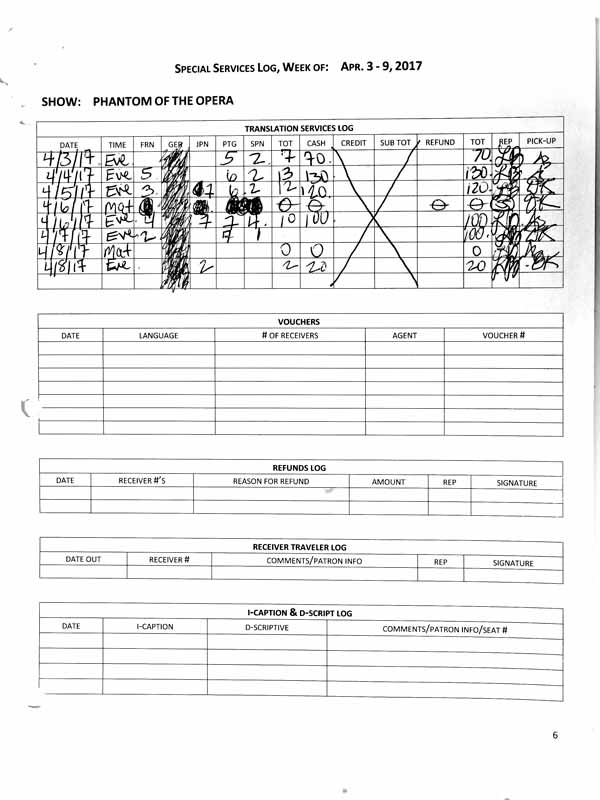 SPECIAL SERVICES LOG, WEEK OF: APR. 3 - 9, 2017
SHOW: PHANTOM OF THE OPERA
TRANSLATION SERVICES LOG
DATE TIME FRN GER JPN PTG SPN TOT CASH CREDIT SUB TOT REFUND TOT REP PICK-UP
4/3/17 Eve 5 2 7 70. 70
4/4/17 Eve 5 6 2 13 130 130
4/5/17 Eve 3 7 6 2 12 120. 120
4/6/17 Mat 0 0 0 0
4/6/17 Eve 7 7 4 10 100 100
4/7/17 Eve 2 7 1 100
4/8/17 Mat 0 0 0
4/8/17 Eve 2 2 20 20
VOUCHERS
DATE LANGUAGE # OF RECEIVERS AGENT VOUCHER #
REFUNDS LOG
DATE RECEIVER #'S REASON FOR REFUND AMOUNT REP SIGNATURE
RECEIVER TRAVELER LOG
DATE OUT RECEIVER # COMMENTS/PATRON INFO REP SIGNATURE
I-CAPTION & D-SCRIPT LOG
DATE I-CAPTION D-SCRIPTIVE COMMENTS/PATRON INFO/SEAT #
6